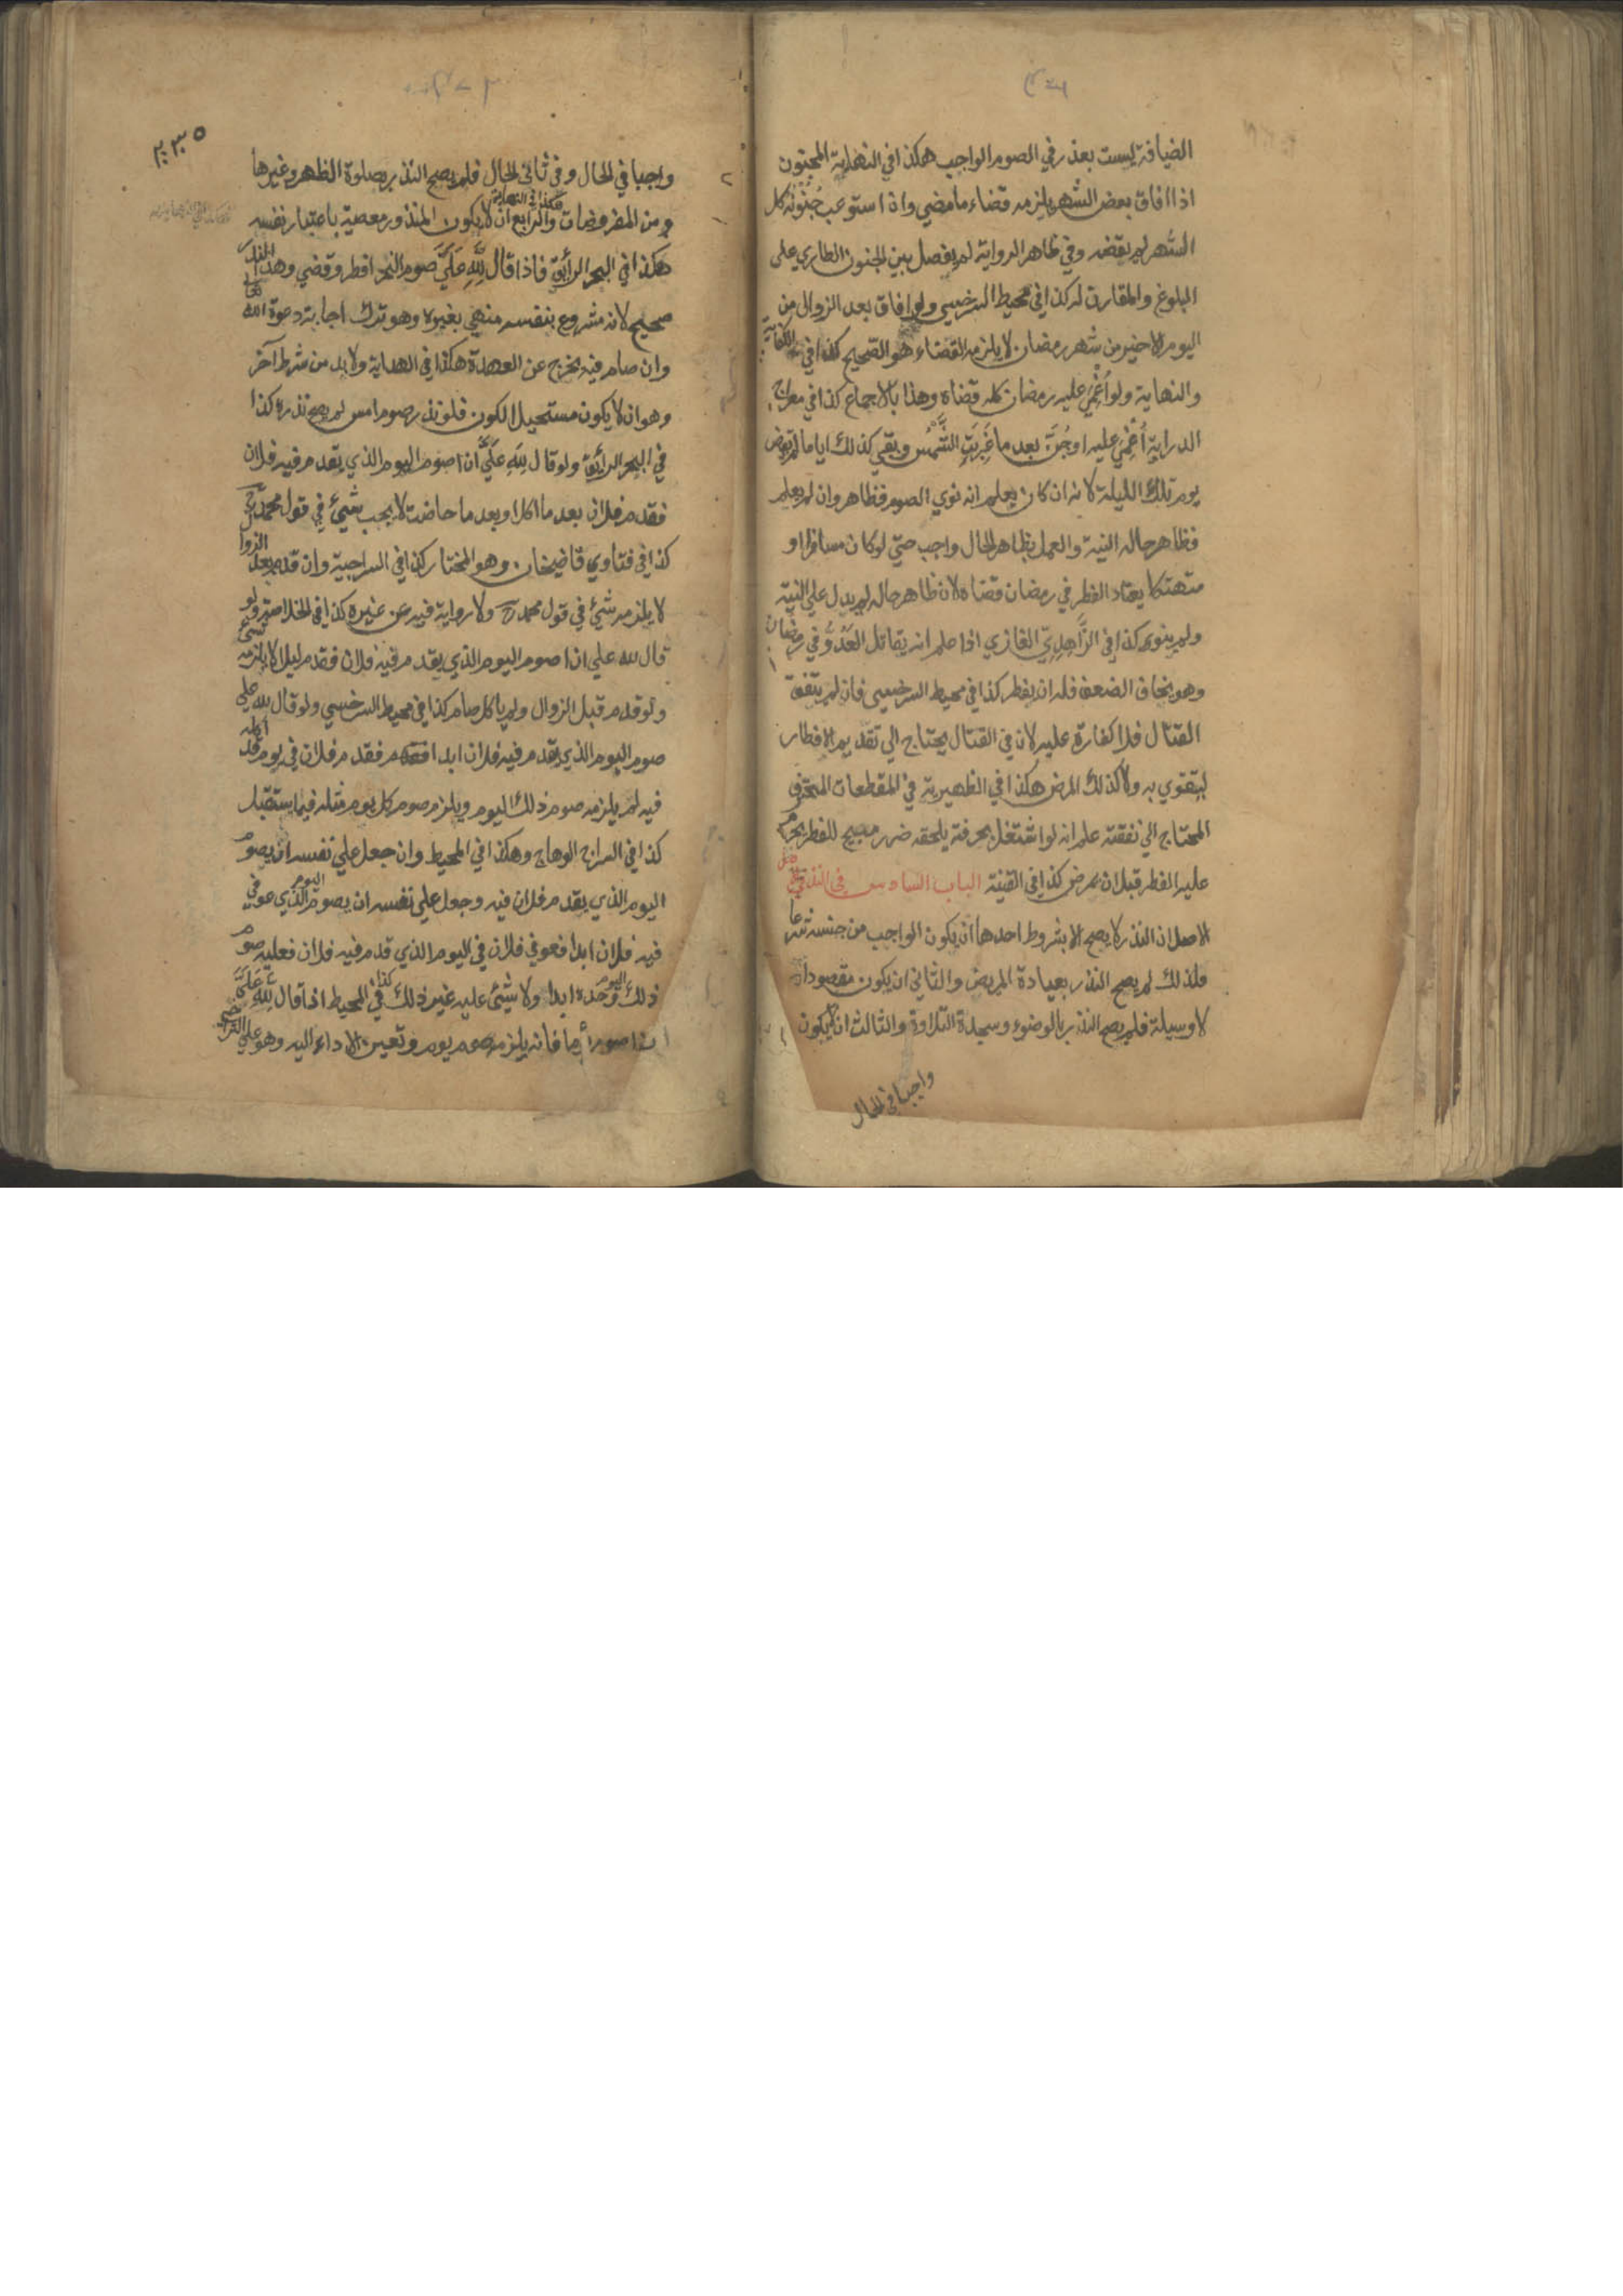 الضيافة ليست بعذر في الصوم الواجب هكذا في النهاية المجنون
اذا افاق بعض الشهر يلزمه قضاء ما مضي واذا استوعب جُنُونُه كل
الشهر لم يقضه وفي ظاهر الرواية لم يفصل بين الجنون الطاري علي
البلوغ والمقارن له كذا في محيط السرخسي ولو افاق بعد الزوال من
اليوم الاخير من شهر رمضان لا يلزمه القضاء هو الصّحيح كذا في الكفاية
والنهاية ولو اُغْمِيَ عليه رمضان كله قضاه وهذا بالاجماع كذا في معراج
الدراية اُغْمِيَ عليه او جُنَّ بعد ما غَرَبَتِ الشَّمْسُ وبقي كذلك اياما لم يقض
يوم تلك الليلة لانه ان كان يعلم انه نوي الصوم فظاهر وان لم يعلم
فظاهر حاله النية والعمل بظاهر الحال واجب حتي لو كان مسافرا او
متهتكا يعتاد الفطر في رمضان قضاه لان ظاهر حاله لم يدل علي النية
ولم ينوي كذا في الزَّاهِدِيّ الغازي اذا علم انه يقاتل العَدُوَّ في رمضان
وهو يخاف الضعف فله ان يفطر كذا في محيط السرخسي فان لم يتفق
القتال فلا كفارة عليه لان في القتال يحتاج الي تقديم الافطار
ليتقوي به ولا كذلك المرض هكذا في الظهيرية في المقطعات المحترف
المحتاج الي نفقته علم انه لو اشتغل بحرفة يلحقه ضرر مبيح للفطر يحرم
عليه الفطر قبل ان يمرض كذا في القنية الباب السادس في النذر
الاصل ان النذر لا يصح الا بشروط احدها ان يكون الواجب من جنسه شرعا
فلذلك لم يصح النذر بعيادة المريض والثاني ان يكون مقصودا
لا وسيلة فلم يصح النذر بالوضوء وسجدة التلاوة والثالث ان لا يكون
واجبا في الحال
٢٣٥
واجبا في الحال وفي ثاني الحال فلم يصح النذر بصلوة الظهر وغيرها
من المفروضات هكذا في النهاية والرابع ان لا يكون المنذور معصية باعتبار نفسه
هكذا في البحر الرائق فاذا قال لِلَّهِ عَلَيَّ صوم النحر افطر وقضي وهذا النذر
صحيح لانه مشروع بنفسه منهي بغيره وهو ترك اجابة دعوة الله تعالي
وان صام فيه يخرج عن العهدة هكذا في الهداية ولا بد من شرط آخر
وهو ان لا يكون مستحيل الكون فلو نذر صوم امس لم يصح نذره كذا
في البحر الرائق ولو قال لِلَّهِ عَلَيَّ ان اصوم اليوم الذي يقدم فيه فلان
فقدم فلان بعد ما اكل او بعد ما حاضت لا يجب شيئ في قول محمد رح
كذا في فتاوي قاضيخان وهو المختار كذا في السراجية وان قدم بعد الزوال
لا يلزمه شيئ في قول محمد رح ولا رواية فيه عن غيره كذا في الخلاصة ولو
قال لله علي ان اصوم اليوم الذي يقدم فيه فلان فقدم ليلا لا يلزمه شيئ
ولو قدم قبل الزوال ولم ياكل صام كذا في محيط السرخسي ولو قال لله علي
صوم اليوم الذي يقدم فيه فلان ابدا فقدم فلان في يوم قد اكل
فيه لم يلزمه صوم ذلك اليوم ويلزم صوم كل يوم مثله فيما يستقبل
كذا في السراج الوهاج وهكذا في المحيط وان جعل علي نفسه ان يصوم
اليوم الذي يقدم فلان فيه وجعل علي نفسه ان يصوم اليوم الذي عوفي
فيه فلان ابدا فعوفي فلان في اليوم الذي قدم فيه فلان فعليه صوم
ذلك اليوم وحده ابدا ولا شيئ عليه غير ذلك كذا في المحيط اذا قال لِلَّهِ عَلَيَّ
ان اصوم يوما فانه يلزمه صوم يوم وتعيين الاداء اليه وهو علي التراخي